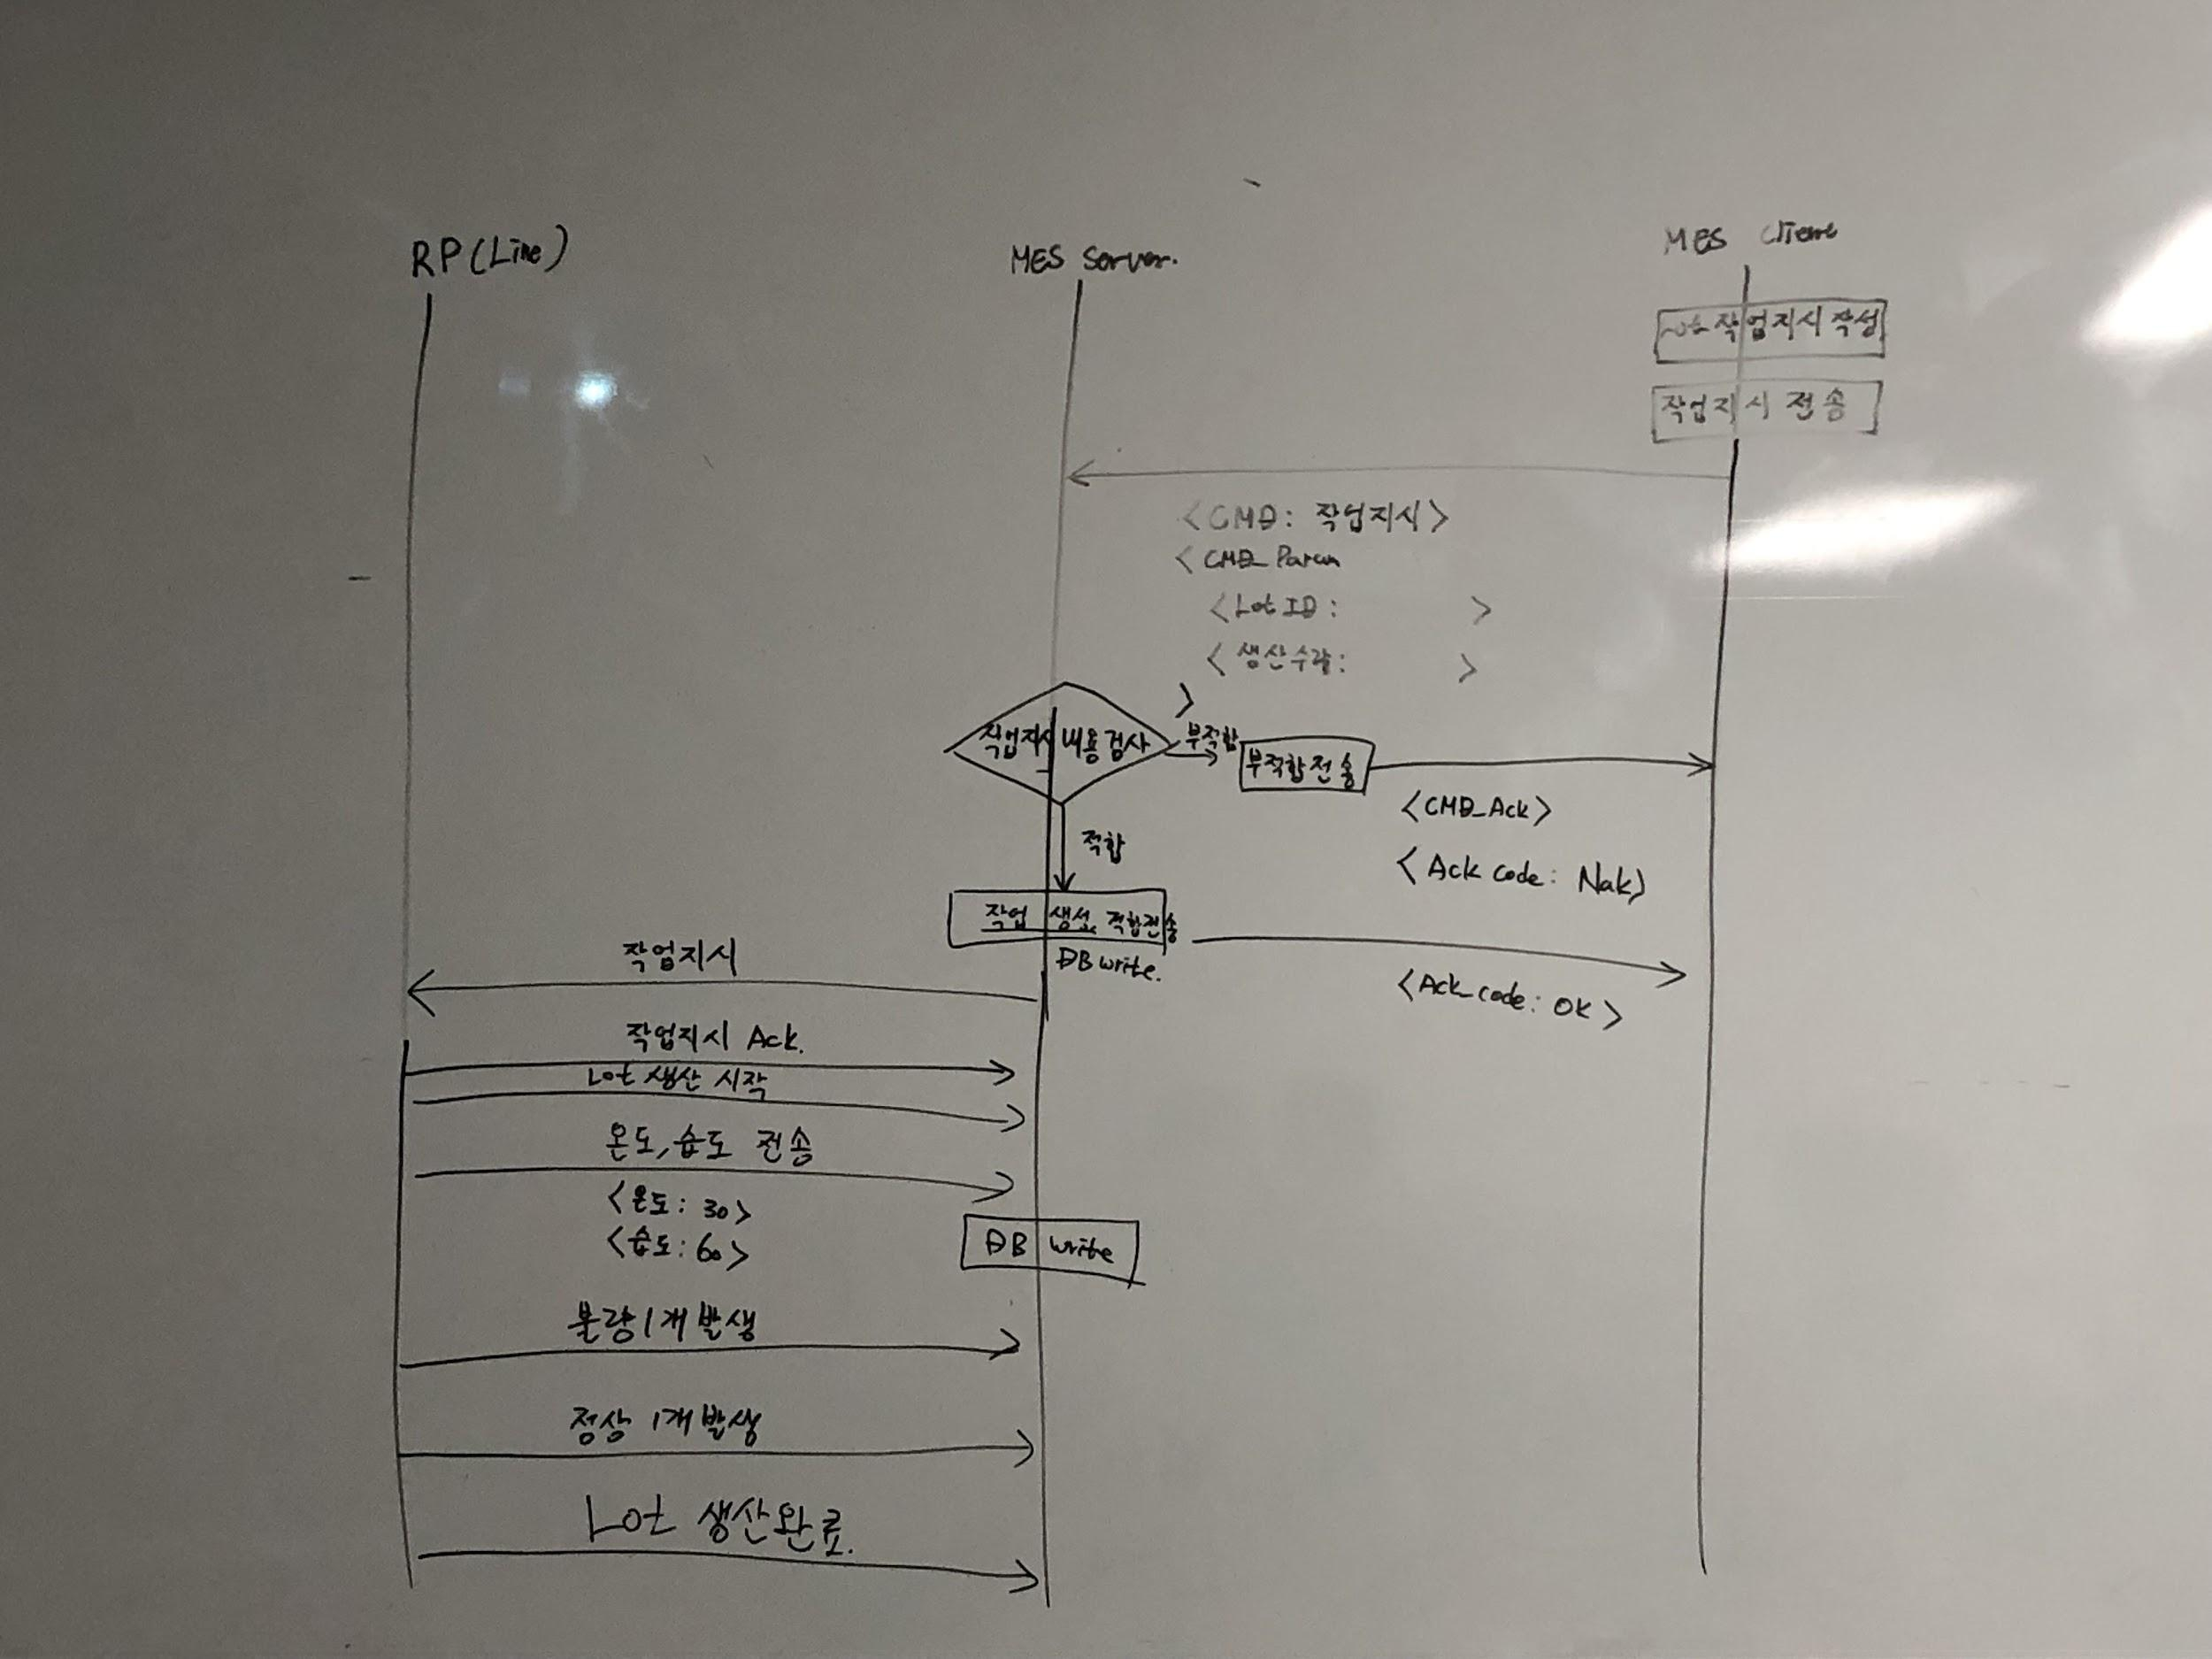 RP(Line)
MES Server.
MES Client
Lot 작업지시 작성
작업지시 전송
<CMD: 작업지시>
<CMD_Param
<Lot ID: >
<생산수량: >
>
작업지시 내용검사
부적합
부적합전송
<CMD_Ack>
<Ack code: Nak)
적합
작업 생성, 적합전송
DB write.
<Ack_code: OK>
작업지시
작업지시 Ack.
Lot 생산 시작
온도,습도 전송
<온도: 30>
<습도: 60>
DB write
불량1개발생
정상 1개발생
Lot 생산완료.